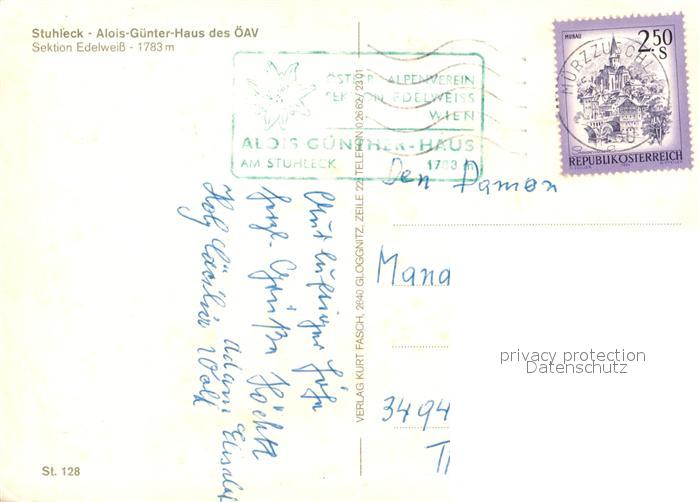 Stuhleck - Alois-Günter-Haus des ÖAV
Sektion Edelweiß - 1783 m
ÖSTERR. ALPENVEREIN
SEKTION EDELWEISS
WIEN
ALOIS GÜNTHER-HAUS
AM STUHLECK 1783 m
MURAU
2.50
S
REPUBLIK ÖSTERREICH
MÜRZZUSCHL
Den Damen
Mana
3494
Aus luftiger Höh
Grüße
VERLAG KURT FASCH, 2640 GLOGGNITZ, ZEILE 22, TELEFON 0 26 62 / 23 01
privacy protection
Datenschutz
St. 128